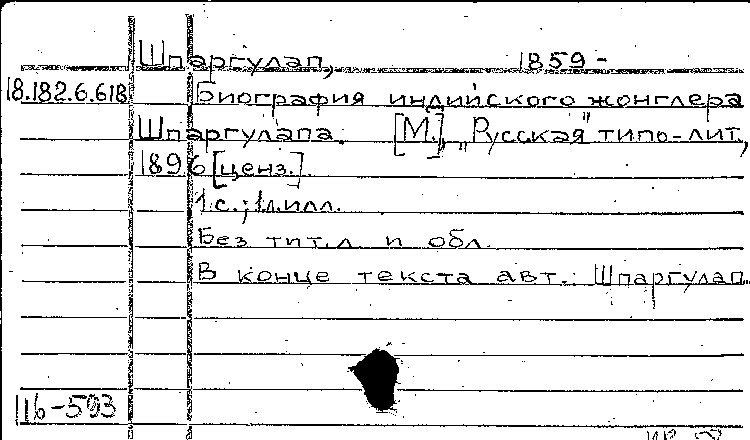 Шпаргулап, 1859-
18.182.6.618 Биография индийского жонглера
Шпаргулапа. [М.], "Русская" типо-лит,
1896 [ценз.].
1 с.; 1 л. илл.
Без тит. л. и обл.
В конце текста авт.: Шпаргулап.
116-593